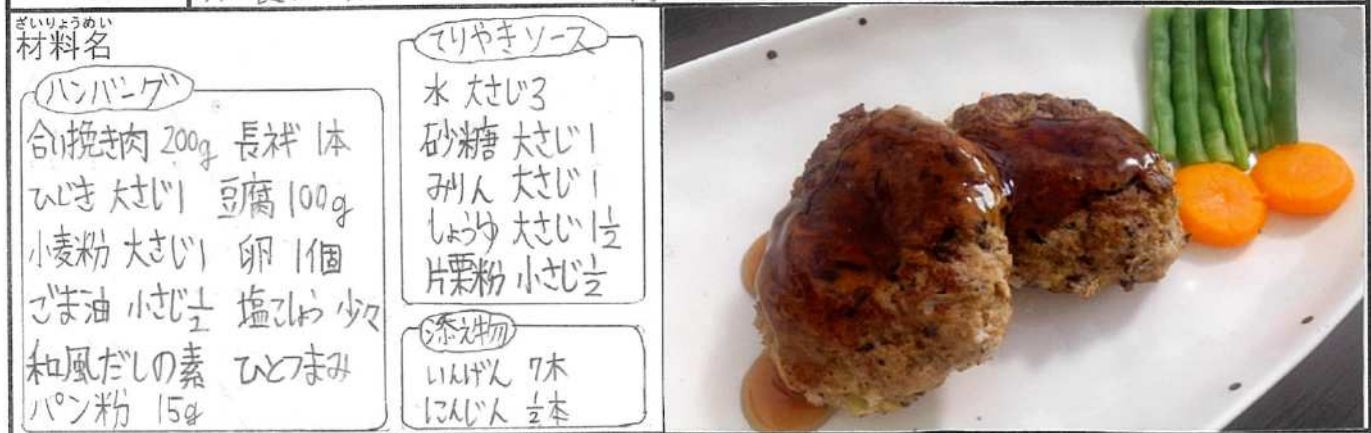 ざいりょうめい
材料名
ハンバーグ
合い挽き肉 200g 長ネギ 1本
ひじき 大さじ1 豆腐 100g
小麦粉 大さじ1 卵 1個
ごま油 小さじ1/2 塩こしょう 少々
和風だしの素 ひとつまみ
パン粉 15g
てりやきソース
水 大さじ3
砂糖 大さじ1
みりん 大さじ1
しょうゆ 大さじ1 1/2
片栗粉 小さじ1/2
添え物
いんげん 7本
にんじん 1/2本